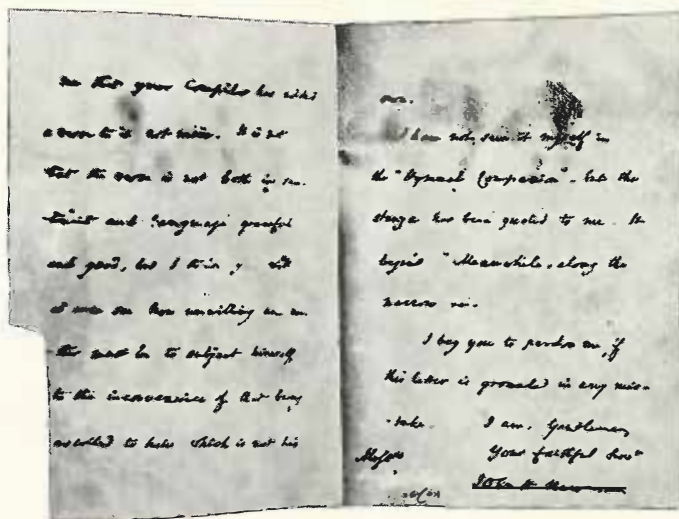 me that your Compiler has added
a verse to it not mine. It is not
that the verse is not both in sen-
timent and language graceful
and good, but I think you will
at once see how unwilling an au-
thor must be to subject himself
to the inconvenience of that being
ascribed to him which is not his
own.
I have not seen it myself in
the "Hymnal Companion", but the
stanza has been quoted to me. It
begins "Meanwhile, along the
narrow
I beg you to pardon me, if
this letter is grounded in any mis-
-take. I am, Gentlemen,
Your faithful Servt
Messrs
John H Newman